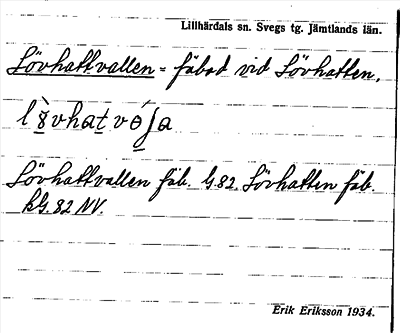 Lillhärdals sn. Svegs tg. Jämtlands län.
Lövhattvallen = fäbod vid Lövhatten.
Lövhattvallen fäb. G.82. Lövhatten fäb.
kG. 82 NV.
Erik Eriksson 1934.